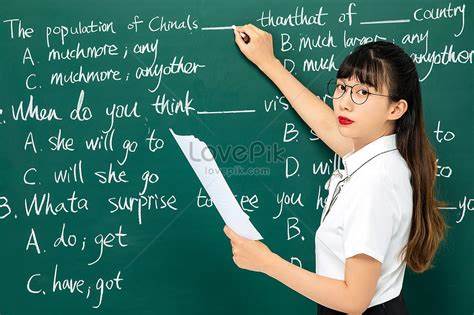 The population of Chinals ____ thanthat of ____ country
A. muchmore; any B. much larger;
C. muchmore; anyother D. much
When do you think ____
A. she will go to
C. will she go to
3. Whata surprise to see you
A. do; get
C. have; got
LovePik
lovepik.com